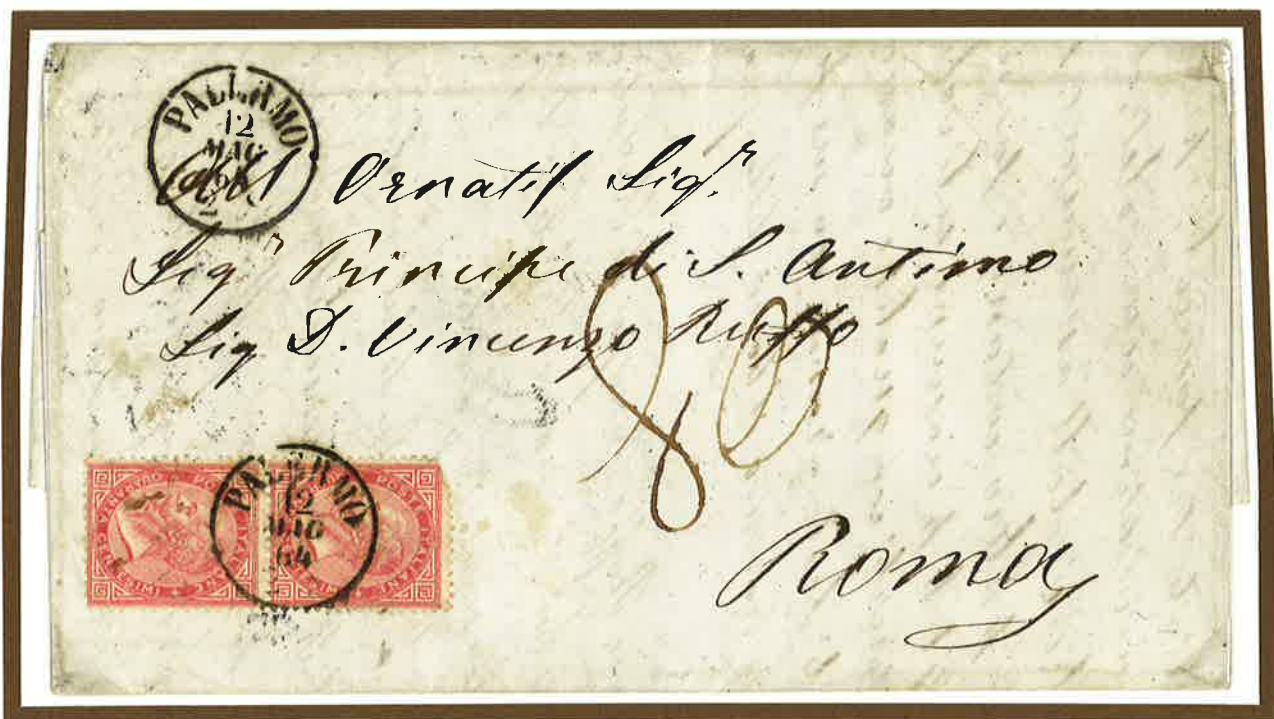 PALERMO
12
MAG
Ornatis Sigr
Sigr Principe di S. Antimo
Sig D. Vincenzo Ruffo
80
PALERMO
12
MAG
64
Roma